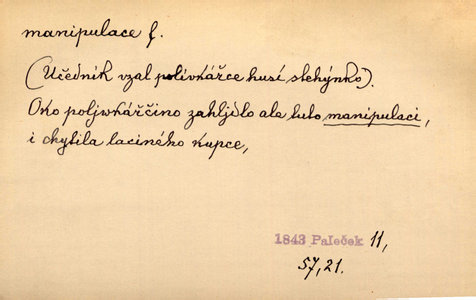 manipulace f.
(Účedník vzal polívkářce husí stehýnko).
Oko poljwkářčino zahljdlo ale tuto manipulaci,
i chytila laciného kupce,
1843 Paleček 11,
57,21.